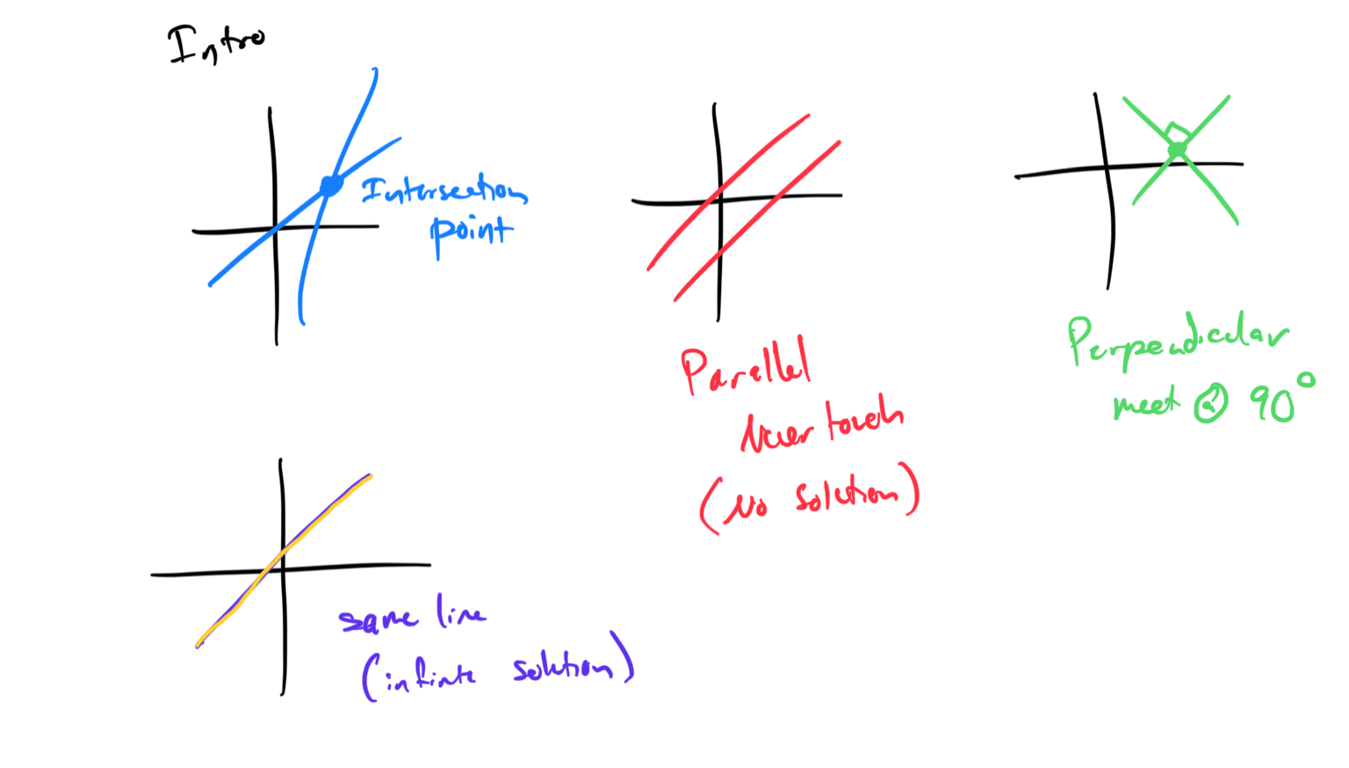 Intro
Intersection
point
Parallel
Never touch
(No solution)
Perpendicular
meet @ 90°
same line
(infinite solution)